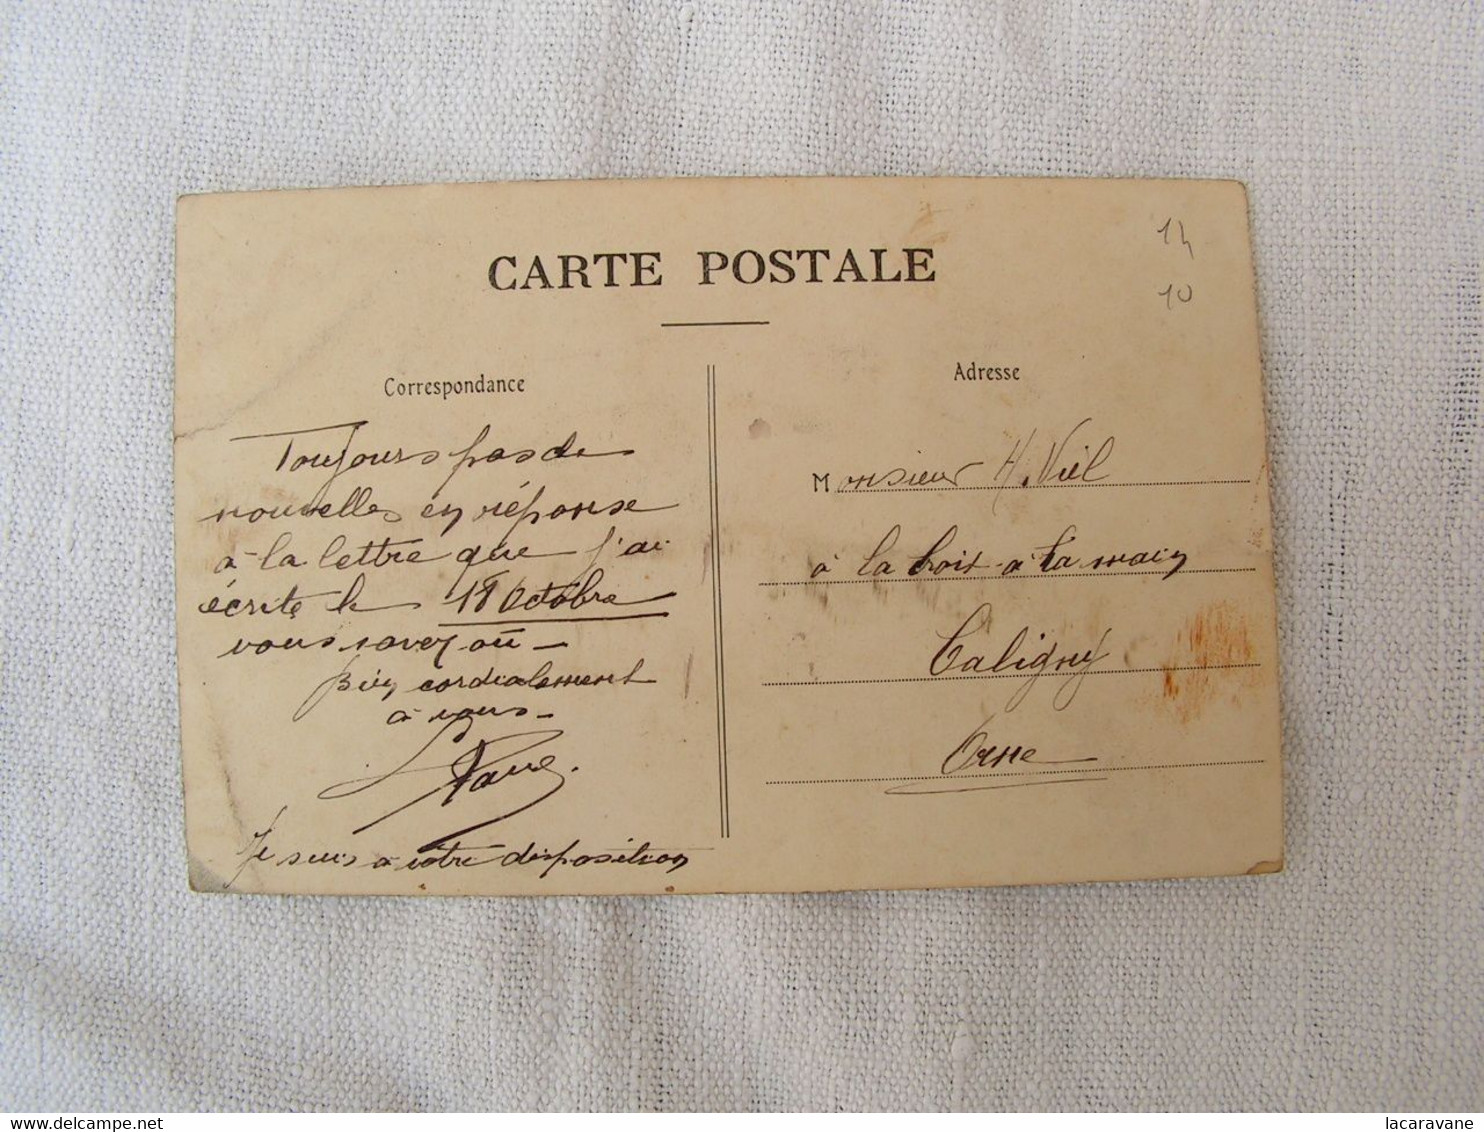 CARTE POSTALE
14
10
Correspondance
Toujours pas de
nouvelles en réponse
à la lettre que j'ai
écrite le 18 Octobre
vous savez où —
Bien cordialement
à vous —
Je suis à votre disposition
Adresse
Monsieur H. Viel
à la Croix à la main
Caligny
Orne
lacaravane